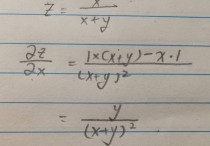 z = x/(x+y)
∂z/∂x = (1×(x+y) − x·1)/(x+y)²
= y/(x+y)²